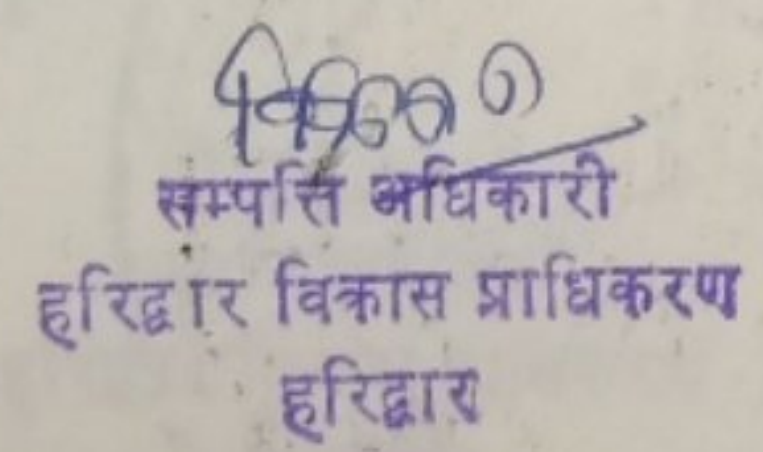 सम्पत्ति अधिकारी
हरिद्वार विकास प्राधिकरण
हरिद्वार